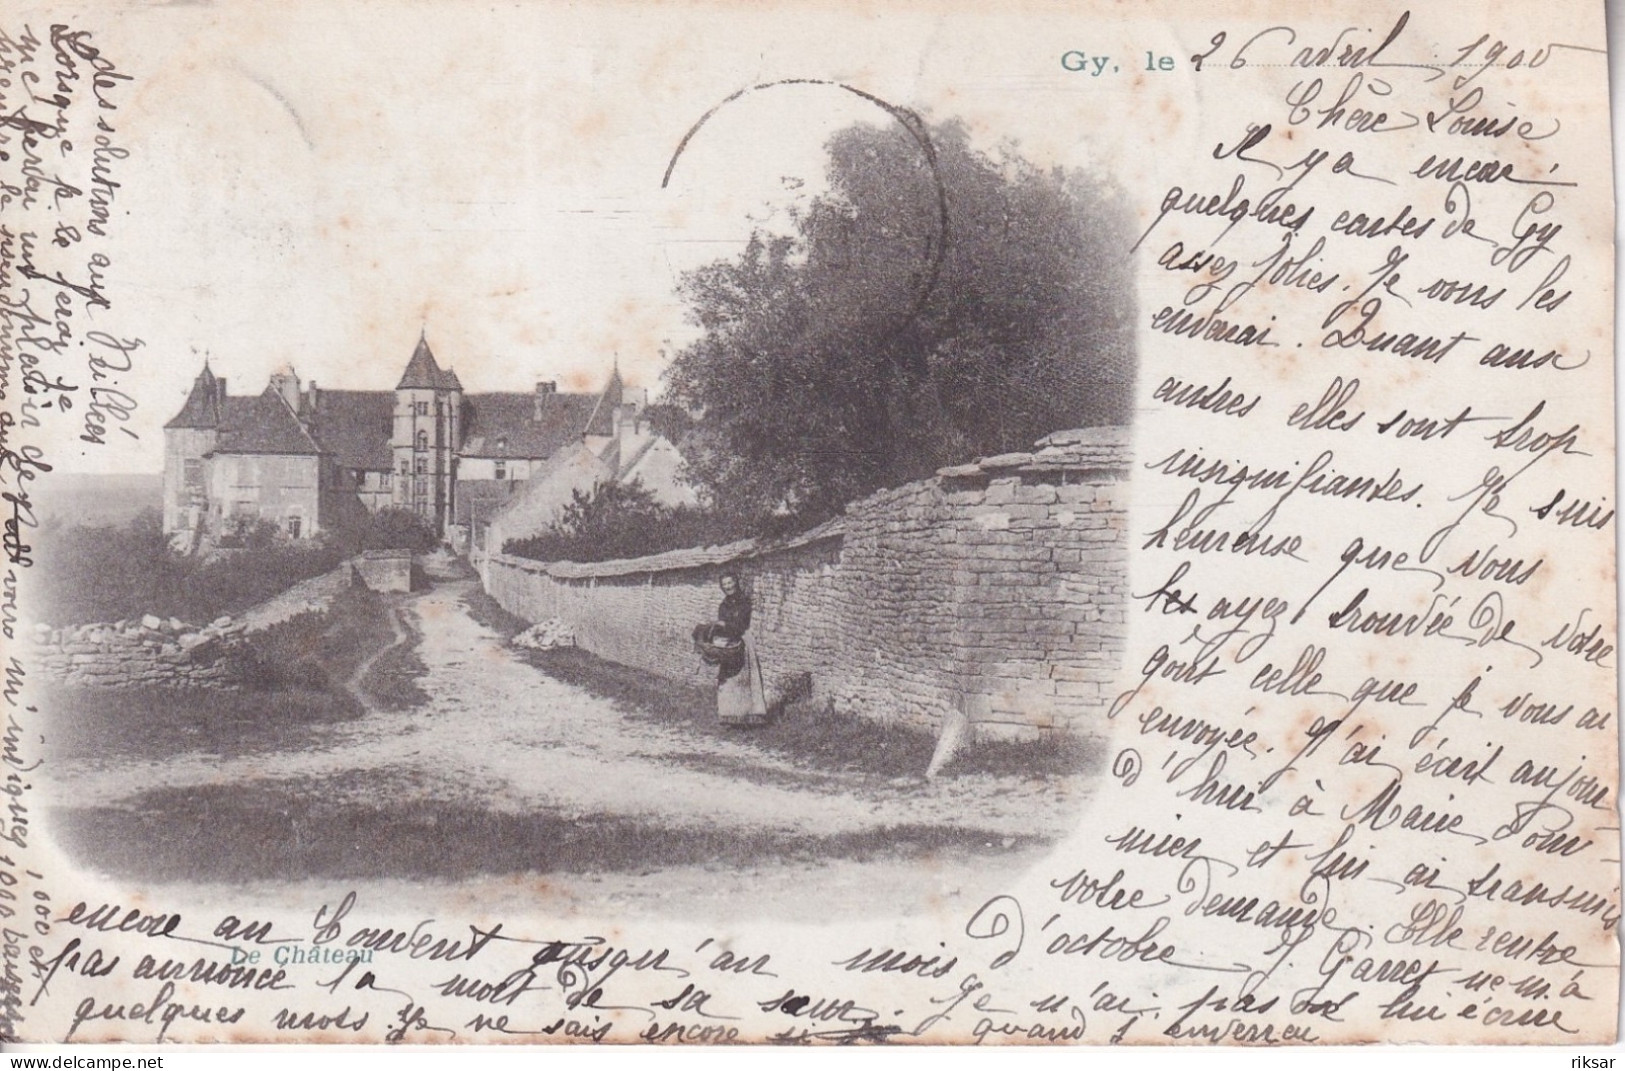 Gy, le 26 avril 1900
Chère Louise
Il y a encore
quelques cartes de Gy
assez jolies. Je vous les
enverai. Quant aux
autres elles sont trop
insignifiantes. Je suis
heureuse que vous
les ayez trouvée de votre
goût celle que je vous ai
envoyée. J'ai écrit aujour
d'hui à Marie
et lui ai transmis
votre demande. Elle rentre
encore au Couvent jusqu'au mois d'octobre. J. Garret ne m'a
pas annoncé la mort de sa sœur. Je n'ai pas lui écrire
quelques mots. Je ne sais encore si je quand j'enverrai
des solutions aux
Lorsque je le ferai je
me ferai un plaisir de
prendre le pseudonyme
1,000 et
1000 baisers
Le Château
riksar